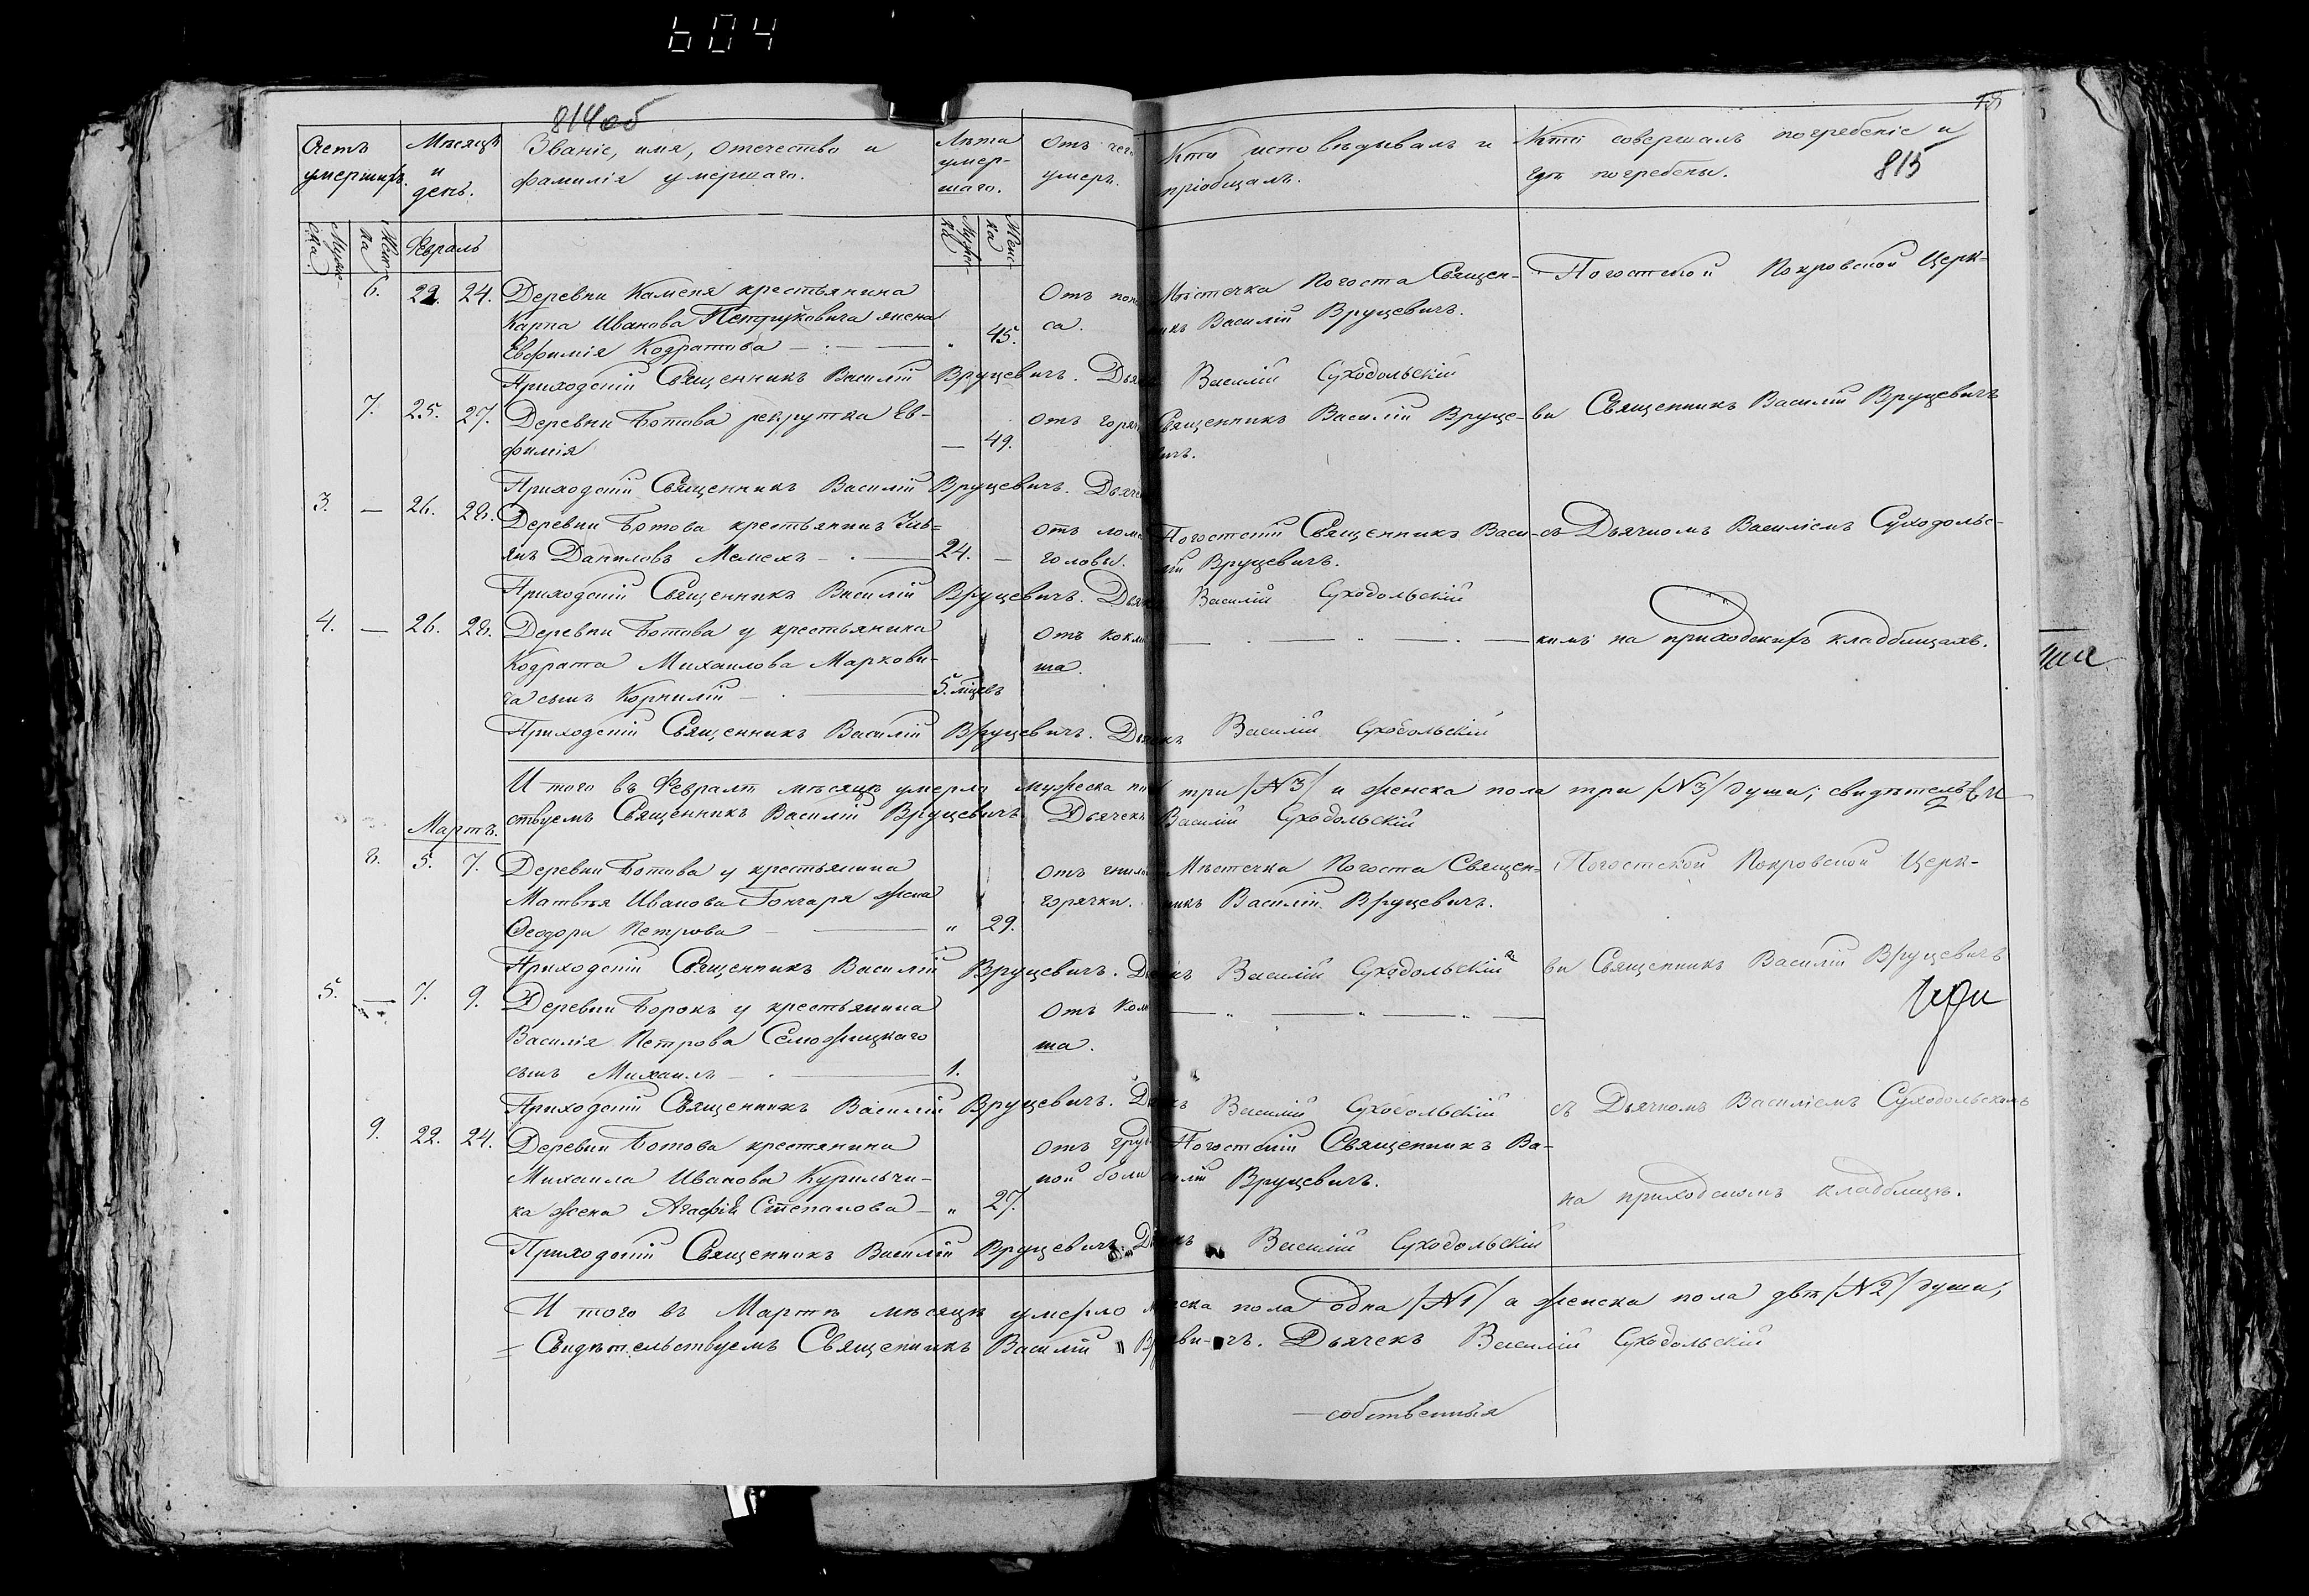 604
814об
18
815
Счетъ умершихъ.
Мѣсяцъ и день.
Званіе, имя, отечество и
фамилія умершаго.
Лѣта умер-
шаго.
Отъ чего
умеръ.
Кто исповѣдывалъ и
пріобщалъ.
Кто совершалъ погребеніе и
гдѣ погребены.
Мужес-
ка
Женс-
ка
Февраль
6. 22. 24. Деревни Каменя крестьянина
Карпа Иванова Петруковича жена
Евфимія Кодратова 45.
Отъ поно
са.
Мѣстечка Погоста Священ-
никъ Василій Вруцевичъ.
Погостской Покровской Церк-
Приходскій Священникъ Василій Вруцевичъ. Дьячекъ Василій Суходольскій
7. 25. 27. Деревни Ботова рекрутка Ев-
фимія — 49.
Отъ горяч
Священникъ Василій Вруце-
вичъ.
ви Священникъ Василій Вруцевичъ
Приходскій Священникъ Василій Вруцевичъ. Дьячек
3. — 26. 28. Деревни Ботова крестьянинъ Уль-
янъ Даниловъ Мемехъ 24. —
отъ ломо
головы.
Погостскій Священникъ Васи-
лій Вруцевичъ.
съ Дьячкомъ Василіемъ Суходольс-
Приходскій Священникъ Василій Вруцевичъ. Дьячекъ Василій Суходольскій
4. — 26. 28. Деревни Ботова у крестьянина
Кодрата Михаилова Маркови-
ча сынъ Корнилій 5. мцевъ
Отъ коклю
ша.
кимъ на приходскихъ кладбищахъ.
Приходскій Священникъ Василій Вруцевичъ. Дьячекъ Василій Суходольскій
И того въ Февралѣ мѣсяцѣ умерло мужеска пола три /№3/ и женска пола три /№3/ души; свидѣтель-
ствуемъ Священникъ Василій Вруцевичъ Дьячекъ Василій Суходольскій
Мартъ.
8. 5. 7. Деревни Ботова у крестьянина
Матвѣя Иванова Гончаря жена
Ѳеодора Петрова " 29.
Отъ гнило
горячки.
Мѣстечка Погоста Священ-
никъ Василій Вруцевичъ.
Погостской Покровской Церк-
Приходскій Священникъ Василій Вруцевичъ. Дьячекъ Василій Суходольскій
ви Священникъ Василій Вруцевичъ
5. — 7. 9. Деревни Борокъ у крестьянина
Василія Петрова Семожицкаго
сынъ Михаилъ 1.
Отъ Кок
ша.
Приходскій Священникъ Василій Вруцевичъ. Дьячекъ Василій Суходольскій
съ Дьячкомъ Василіемъ Суходольскимъ
9. 22. 24. Деревни Ботова крестянина
Михаила Иванова Курильчи-
ка жена Агафія Степанова " 27.
Отъ груд
ной боли
Погостскій Священникъ Ва-
силій Вруцевичъ.
на приходскомъ кладбищѣ.
Приходскій Священникъ Василій Вруцевичъ. Дьячекъ Василій Суходольскій
И того въ Мартѣ мѣсяцѣ умерло мужеска пола одна /№1/ а женска пола двѣ /№2/ души;
Свидѣтельствуемъ Священникъ Василій Вруцевичъ. Дьячекъ Василій Суходольскій